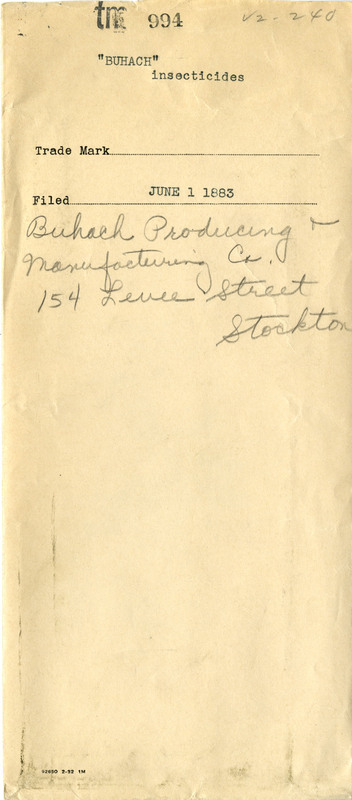 tm 994
V2-240
"BUHACH"
insecticides
Trade Mark
Filed JUNE 1 1883
Buhach Producing &
Manufacturing Co.
154 Levee Street
Stockton
52600 2-32 1M